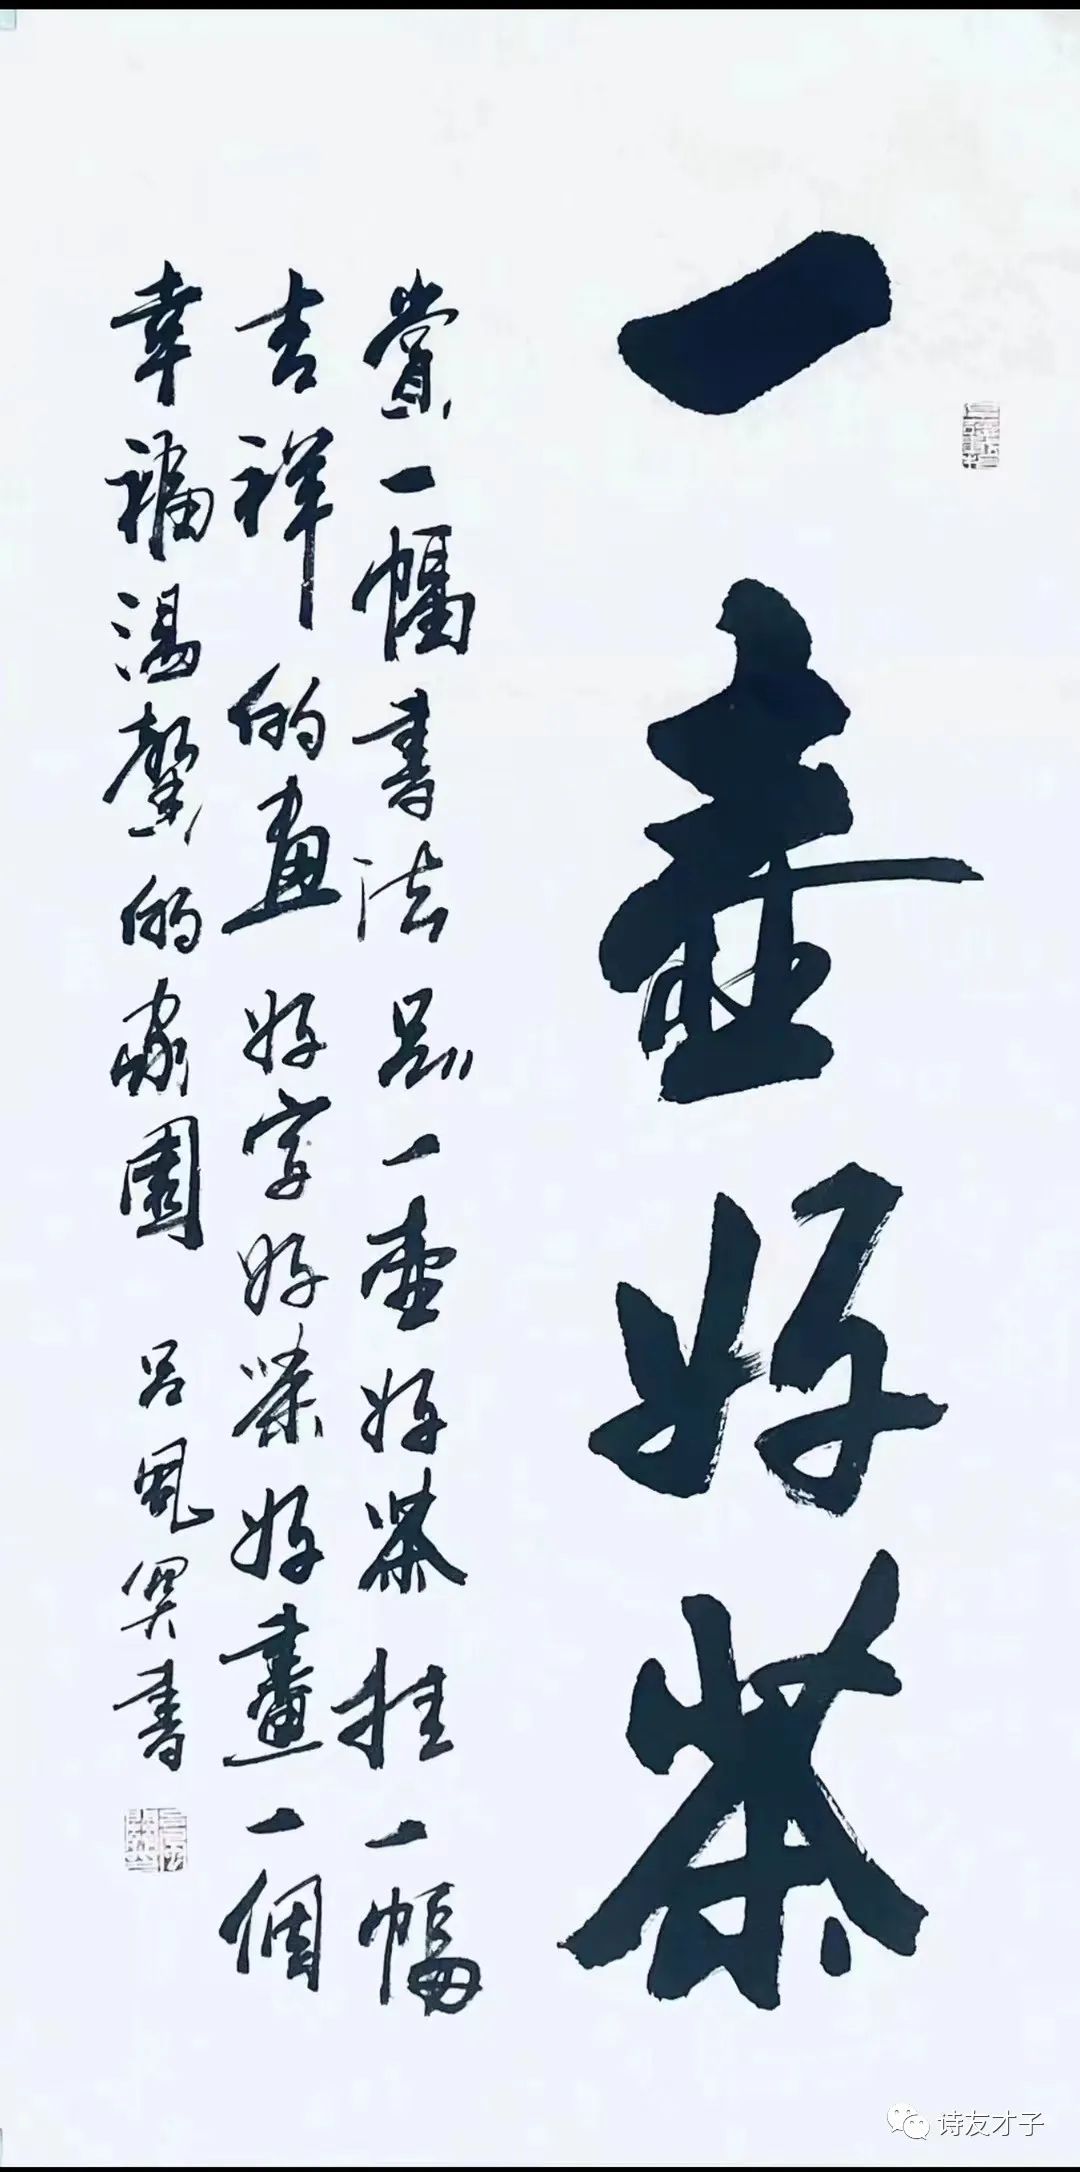 一壶好茶
賞一幅書法品一壶好茶挂一幅
吉祥的画好字好茶好畫一個
幸福温馨的家園吕風巽書
诗友才子